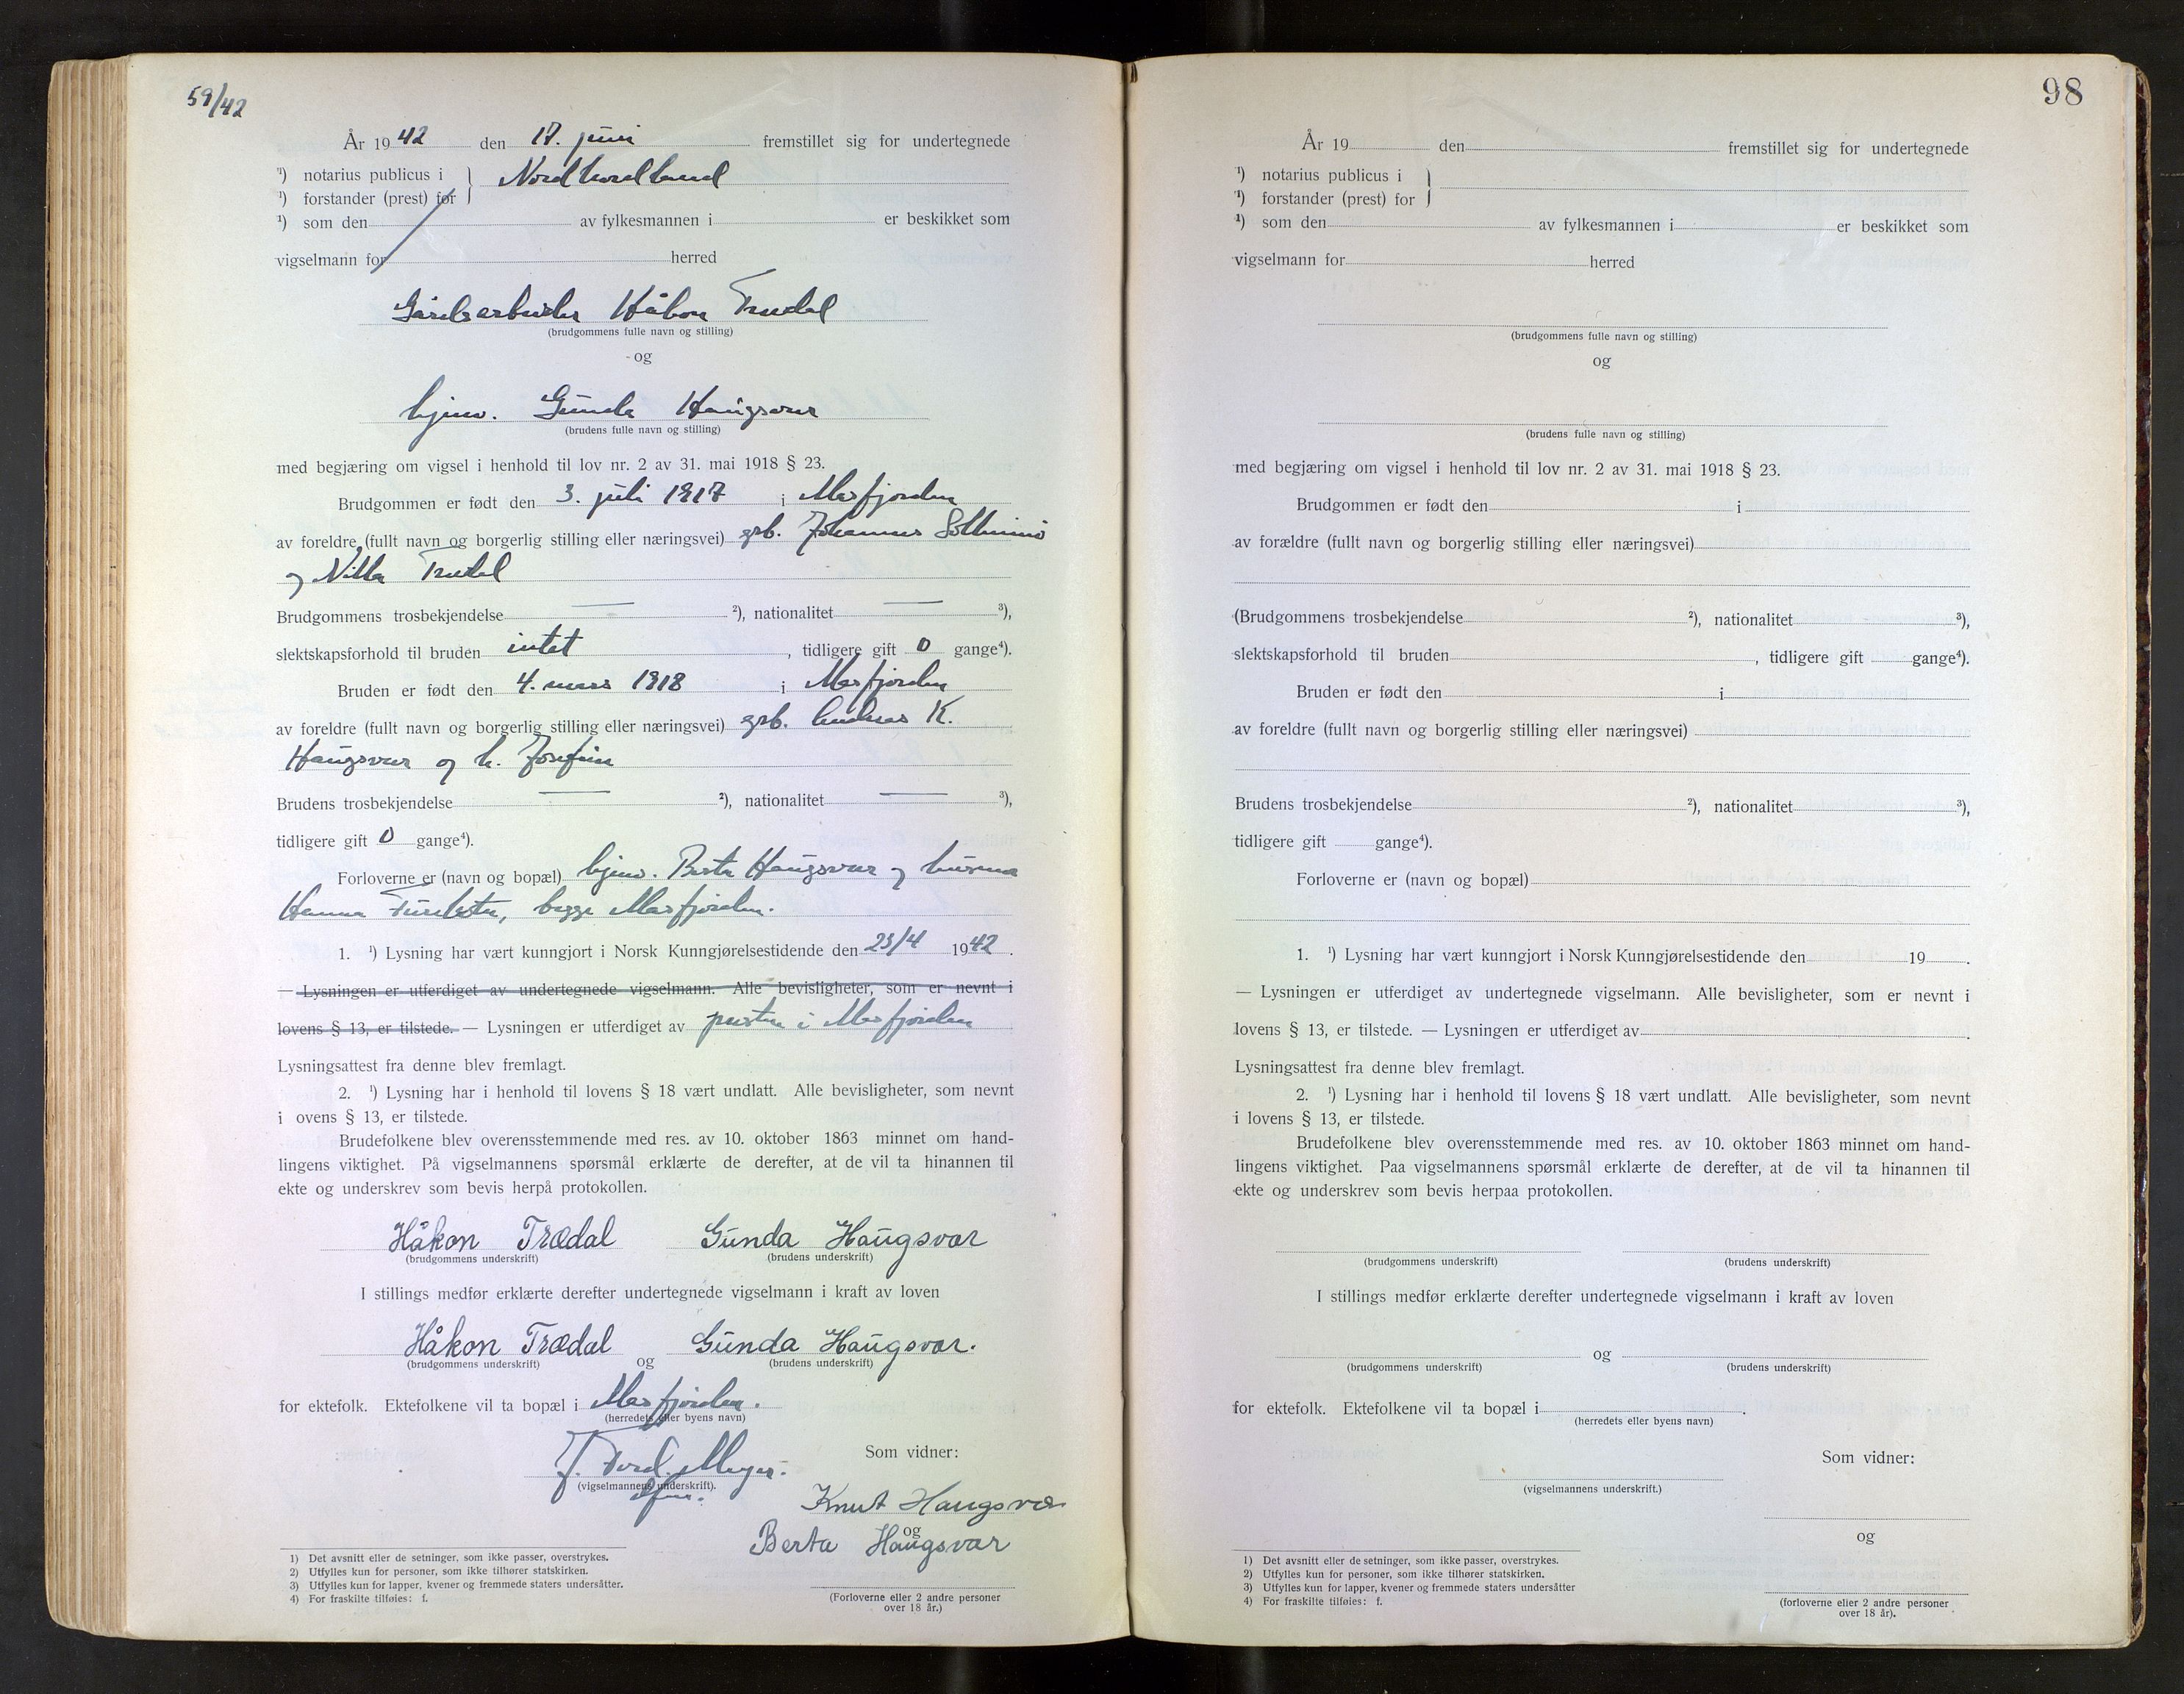 59/42
År 1942 den 17. juni fremstillet sig for undertegnede
¹) notarius publicus i Nordhordland
¹) forstander (prest) for
¹) som den av fylkesmannen i er beskikket som
vigselmann for herred
Gårdsarbeider Håkon Trædal
(brudgommens fulle navn og stilling)
- og
hjmv. Gunda Haugsvær
(brudens fulle navn og stilling)
med begjæring om vigsel i henhold til lov nr. 2 av 31. mai 1918 § 23.
Brudgommen er født den 3. juli 1917 i Masfjorden
av foreldre (fullt navn og borgerlig stilling eller næringsvei) grb. Johannes
og Trædal
Brudgommens trosbekjendelse — ²), nationalitet — ³),
slektskapsforhold til bruden intet, tidligere gift 0 gange⁴).
Bruden er født den 4. mars 1918 i Masfjorden
av foreldre (fullt navn og borgerlig stilling eller næringsvei) grb. Andreas K.
Haugsvær og h. Josefine
Brudens trosbekjendelse — ²), nationalitet — ³),
tidligere gift 0 gange⁴).
Forloverne er (navn og bopæl) hjmv. Berta Haugsvær og husmor
Hanna begge Masfjorden.
1. ¹) Lysning har vært kunngjort i Norsk Kunngjørelsestidende den 23/4 1942.
— Lysningen er utferdiget av undertegnede vigselmann. Alle bevisligheter, som er nevnt i
lovens § 13, er tilstede. — Lysningen er utferdiget av presten i Masfjorden
Lysningsattest fra denne blev fremlagt.
2. ¹) Lysning har i henhold til lovens § 18 vært undlatt. Alle bevisligheter, som nevnt
i ovens § 13, er tilstede.
Brudefolkene blev overensstemmende med res. av 10. oktober 1863 minnet om hand-
lingens viktighet. På vigselmannens spørsmål erklærte de derefter, at de vil ta hinannen til
ekte og underskrev som bevis herpå protokollen.
Håkon Trædal Gunda Haugsvær
(brudgommens underskrift) (brudens underskrift)
I stillings medfør erklærte derefter undertegnede vigselmann i kraft av loven
Håkon Trædal og Gunda Haugsvær.
(brudgommens underskrift) (brudens underskrift)
for ektefolk. Ektefolkene vil ta bopæl i Masfjorden.
(herredets eller byens navn)
Meyer. Som vidner:
(vigselmannens underskrift).
Knut Haugsvær
og
Berta Haugsvær
(Forloverne eller 2 andre personer
over 18 år.)
1) Det avsnitt eller de setninger, som ikke passer, overstrykes.
2) Utfylles kun for personer, som ikke tilhører statskirken.
3) Utfylles kun for lapper, kvener og fremmede staters undersåtter.
4) For fraskilte tilføies: f.
98
År 19 den fremstillet sig for undertegnede
¹) notarius publicus i
¹) forstander (prest) for
¹) som den av fylkesmannen i er beskikket som
vigselmann for herred
(brudgommens fulle navn og stilling)
og
(brudens fulle navn og stilling)
med begjæring om vigsel i henhold til lov nr. 2 av 31. mai 1918 § 23.
Brudgommen er født den i
av forældre (fullt navn og borgerlig stilling eller næringsvei)
(Brudgommens trosbekjendelse ²), nationalitet ³),
slektskapsforhold til bruden , tidligere gift gange⁴).
Bruden er født den i
av foreldre (fullt navn og borgerlig stilling eller næringsvei)
Brudens trosbekjendelse ²), nationalitet ³),
tidligere gift gange⁴).
Forloverne er (navn og bopæl)
1. ¹) Lysning har vært kunngjort i Norsk Kunngjørelsestidende den 19 .
— Lysningen er utferdiget av undertegnede vigselmann. Alle bevisligheter, som er nevnt i
lovens § 13, er tilstede. — Lysningen er utferdiget av .
Lysningsattest fra denne blev fremlagt.
2. ¹) Lysning har i henhold til lovens § 18 vært undlatt. Alle bevisligheter, som nevnt
i lovens § 13, er tilstede.
Brudefolkene blev overensstemmende med res. av 10. oktober 1863 minnet om hand-
lingens viktighet. Paa vigselmannens spørsmål erklærte de derefter, at de vil ta hinannen til
ekte og underskrev som bevis herpaa protokollen.
(brudgommens underskrift) (brudens underskrift)
I stillings medfør erklærte derefter undertegnede vigselmann i kraft av loven
og
(brudgommens underskrift) (brudens underskrift)
for ektefolk. Ektefolkene vil ta bopæl i .
(herredets eller byens navn)
Som vidner:
(vigselmannens underskrift.)
og
(forloverne eller 2 andre personer
over 18 år).
1) Det avsnitt eller de setninger, som ikke passer, overstrykes.
2) Utfylles kun for personer, som ikke tilhører statskirken.
3) Utfylles kun for lapper, kvener og fremmede staters undersåtter
4) For fraskilte tilføies: f.